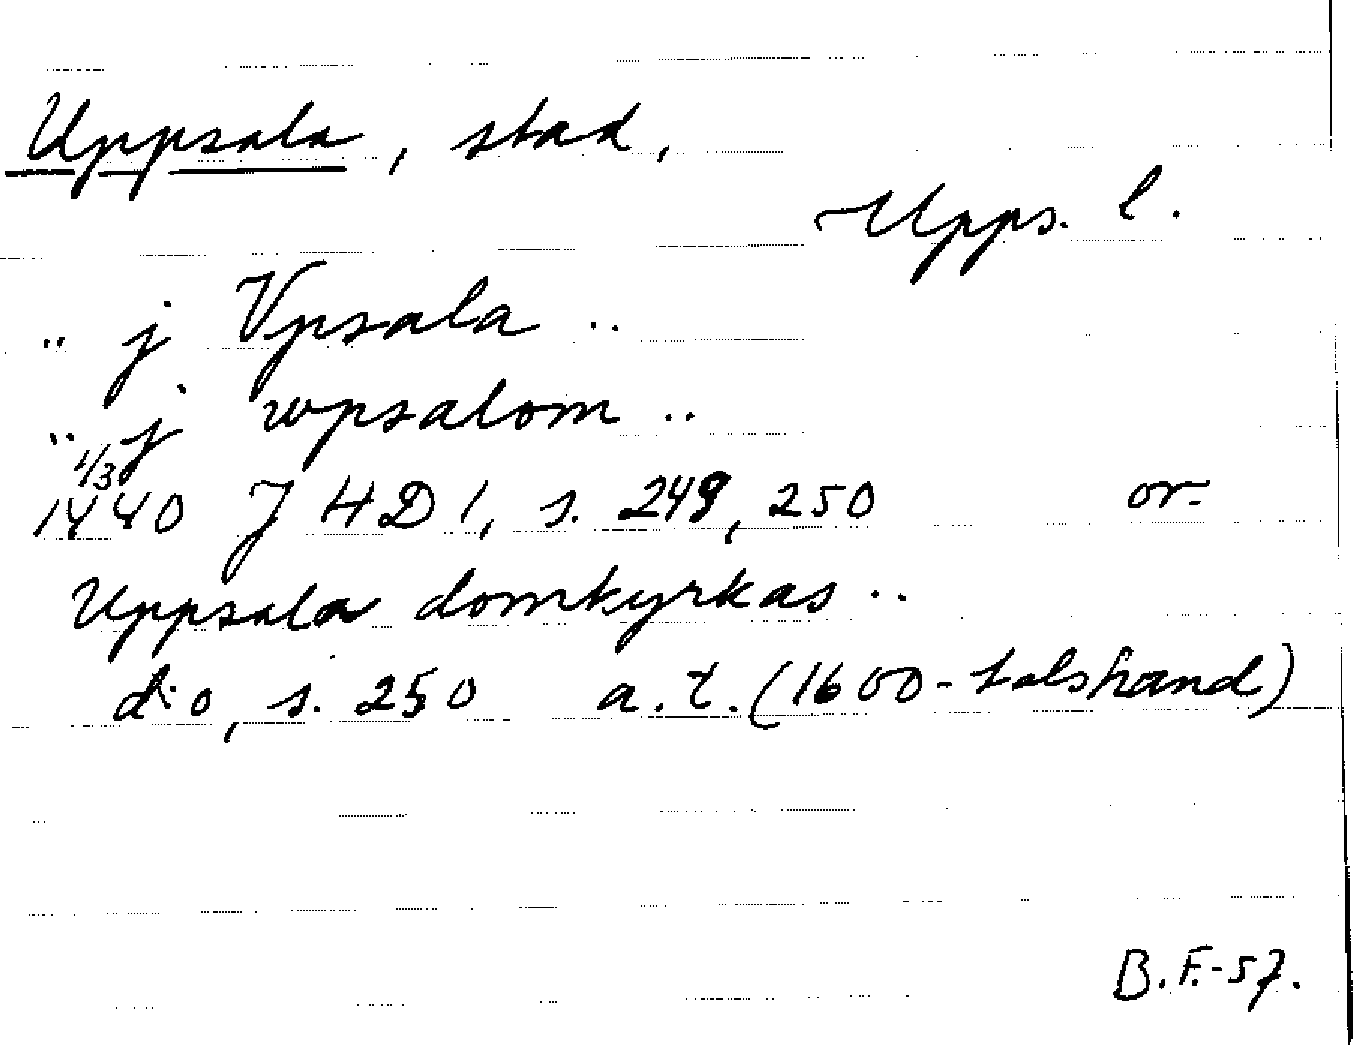 Uppsala, stad,
Upps. l.
.. j Vpsala ..
.. j wpsalom ..
1/3
1440 J HD 1, s. 249, 250 or.
Uppsala domkyrkas ..
d:o, s. 250 a.t. (1600-talshand)
B.F.-57.